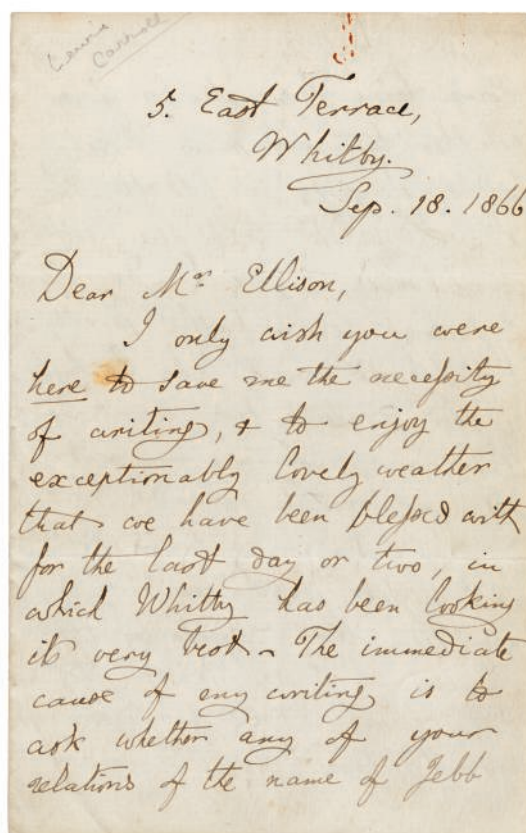 Lewis
Carroll
5. East Terrace,
Whitby.
Sep. 18. 1866
Dear Mrs Ellison,
I only wish you were
here to save me the necessity
of writing, & to enjoy the
exceptionably lovely weather
that we have been blessed with
for the last day or two, in
which Whitby has been looking
its very best. The immediate
cause of my writing is to
ask whether any of your
relations of the name of Jebb